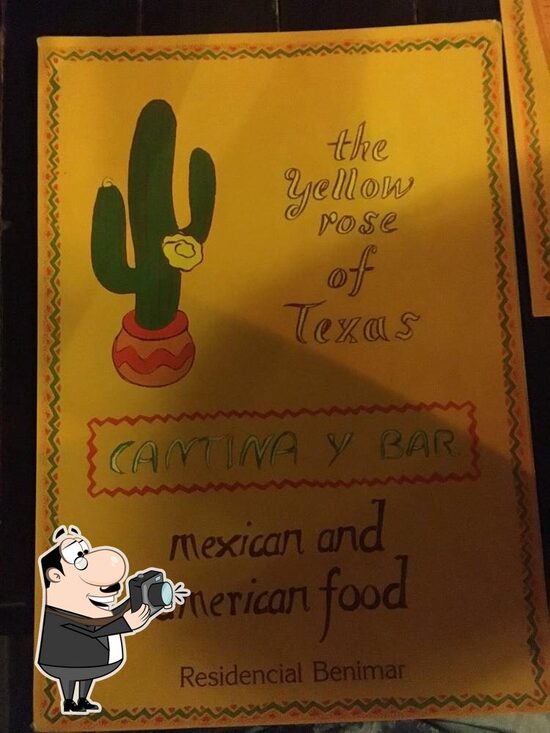 the
Yellow
rose
of
Texas
CANTINA Y BAR
mexican and
american food
Residencial Benimar